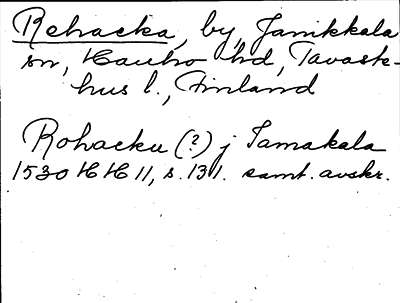 Rehacka, by, Janikkala
sn, Hauho hd, Tavast-
hus l., Finland
Rohacku (?) j Tamakala
1530 HH 11, s. 131. samt. avskr.